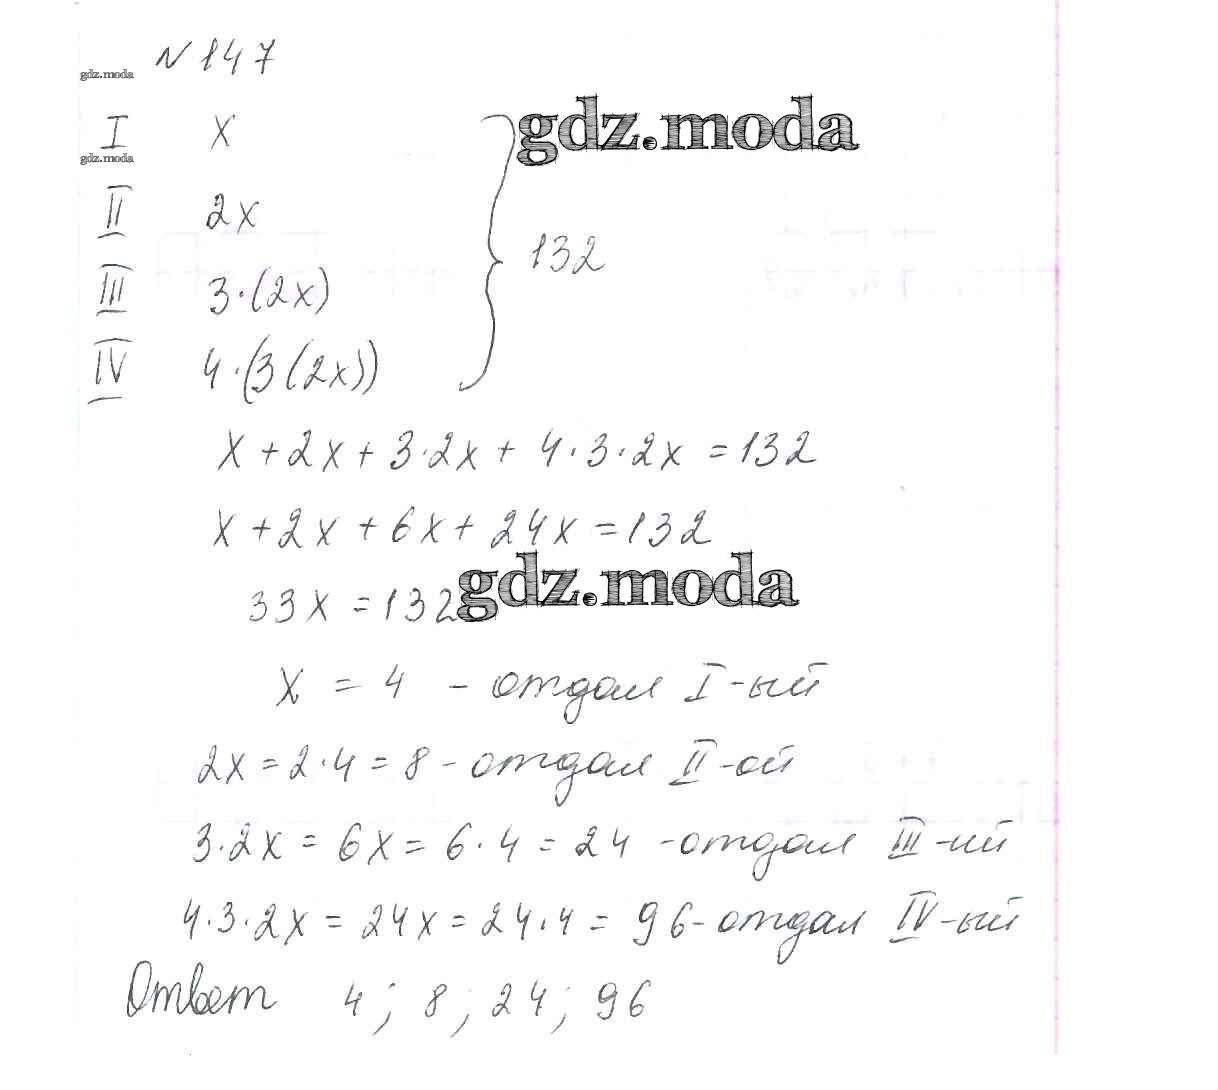 N 147
gdz.moda
I x
gdz.moda
gdz.moda
II 2x
132
III 3·(2x)
IV 4·(3(2x))
x + 2x + 3·2x + 4·3·2x = 132
x + 2x + 6x + 24x = 132
gdz.moda
33x = 132
x = 4 - отдал I-ый
2x = 2·4 = 8 - отдал II-ой
3·2x = 6x = 6·4 = 24 - отдал III-ий
4·3·2x = 24x = 24·4 = 96 - отдал IV-ый
Ответ 4; 8; 24; 96